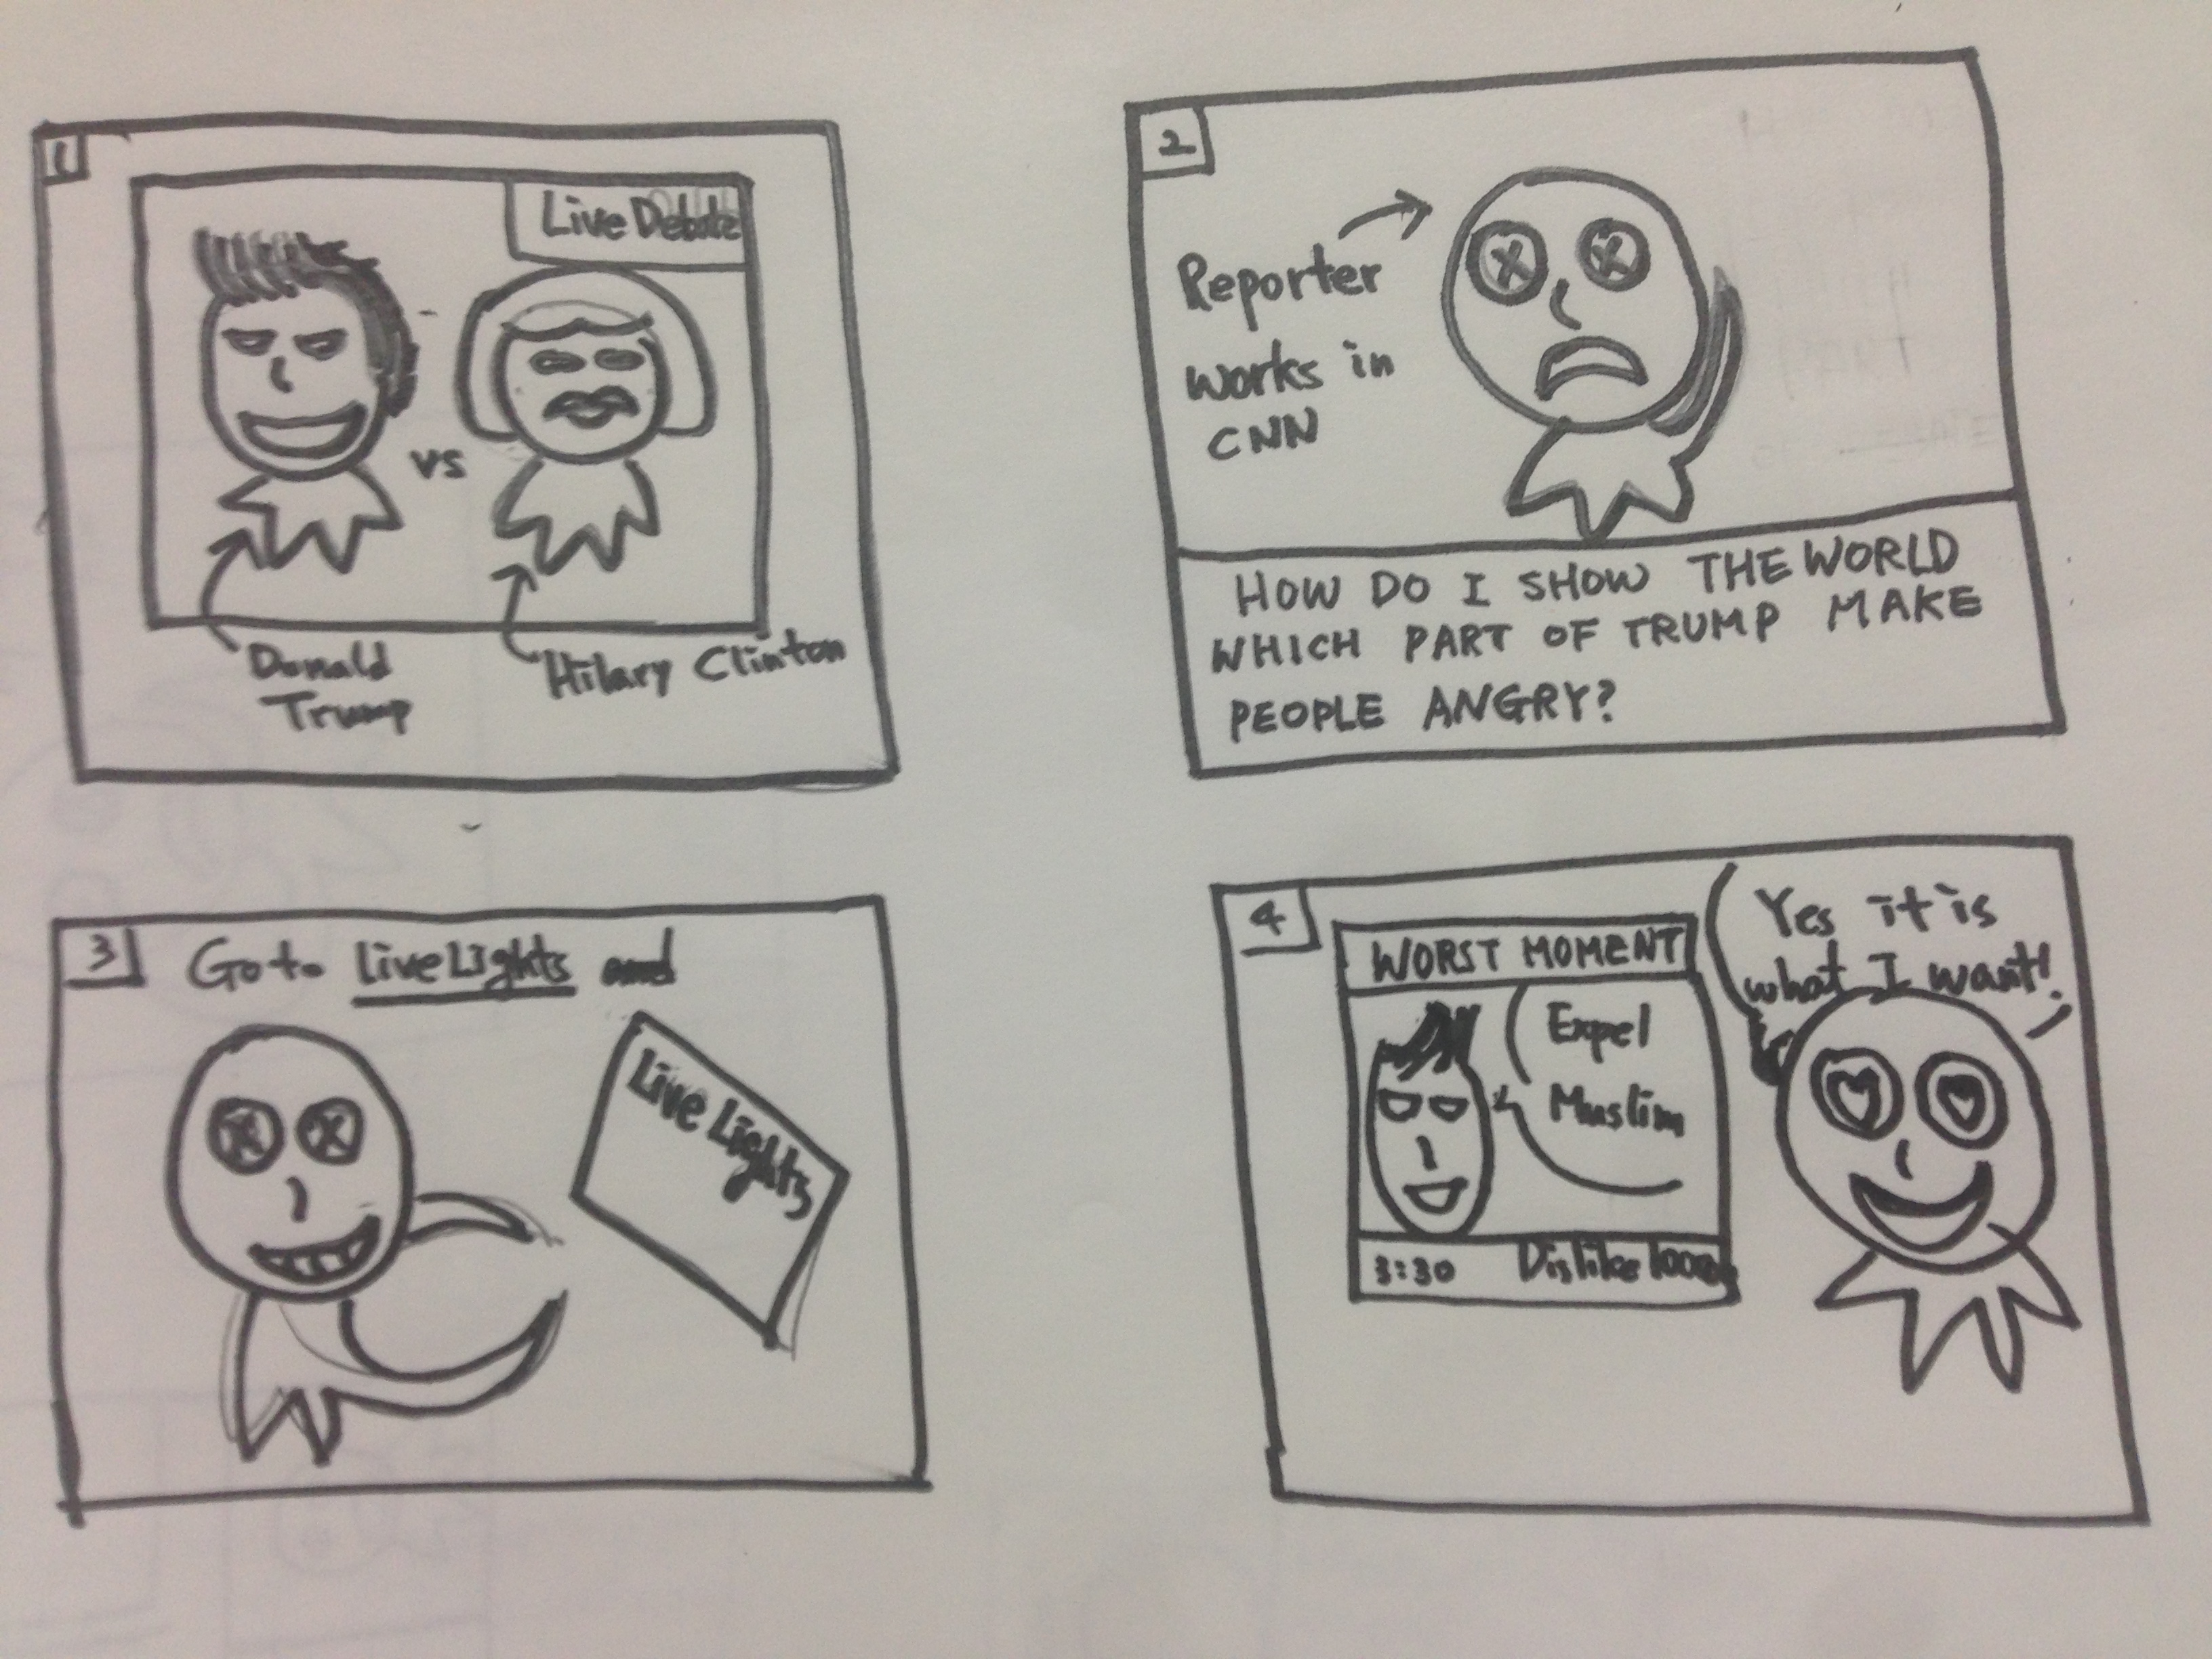 1
Live Debate
vs
Donald
Trump
Hilary Clinton
2
Reporter
works in
CNN
HOW DO I SHOW THE WORLD
WHICH PART OF TRUMP MAKE
PEOPLE ANGRY?
3
Go to liveLights and
Live Lights
4
WORST MOMENT
Expel
Muslim
3:30 Dislike
Yes it is
what I want!